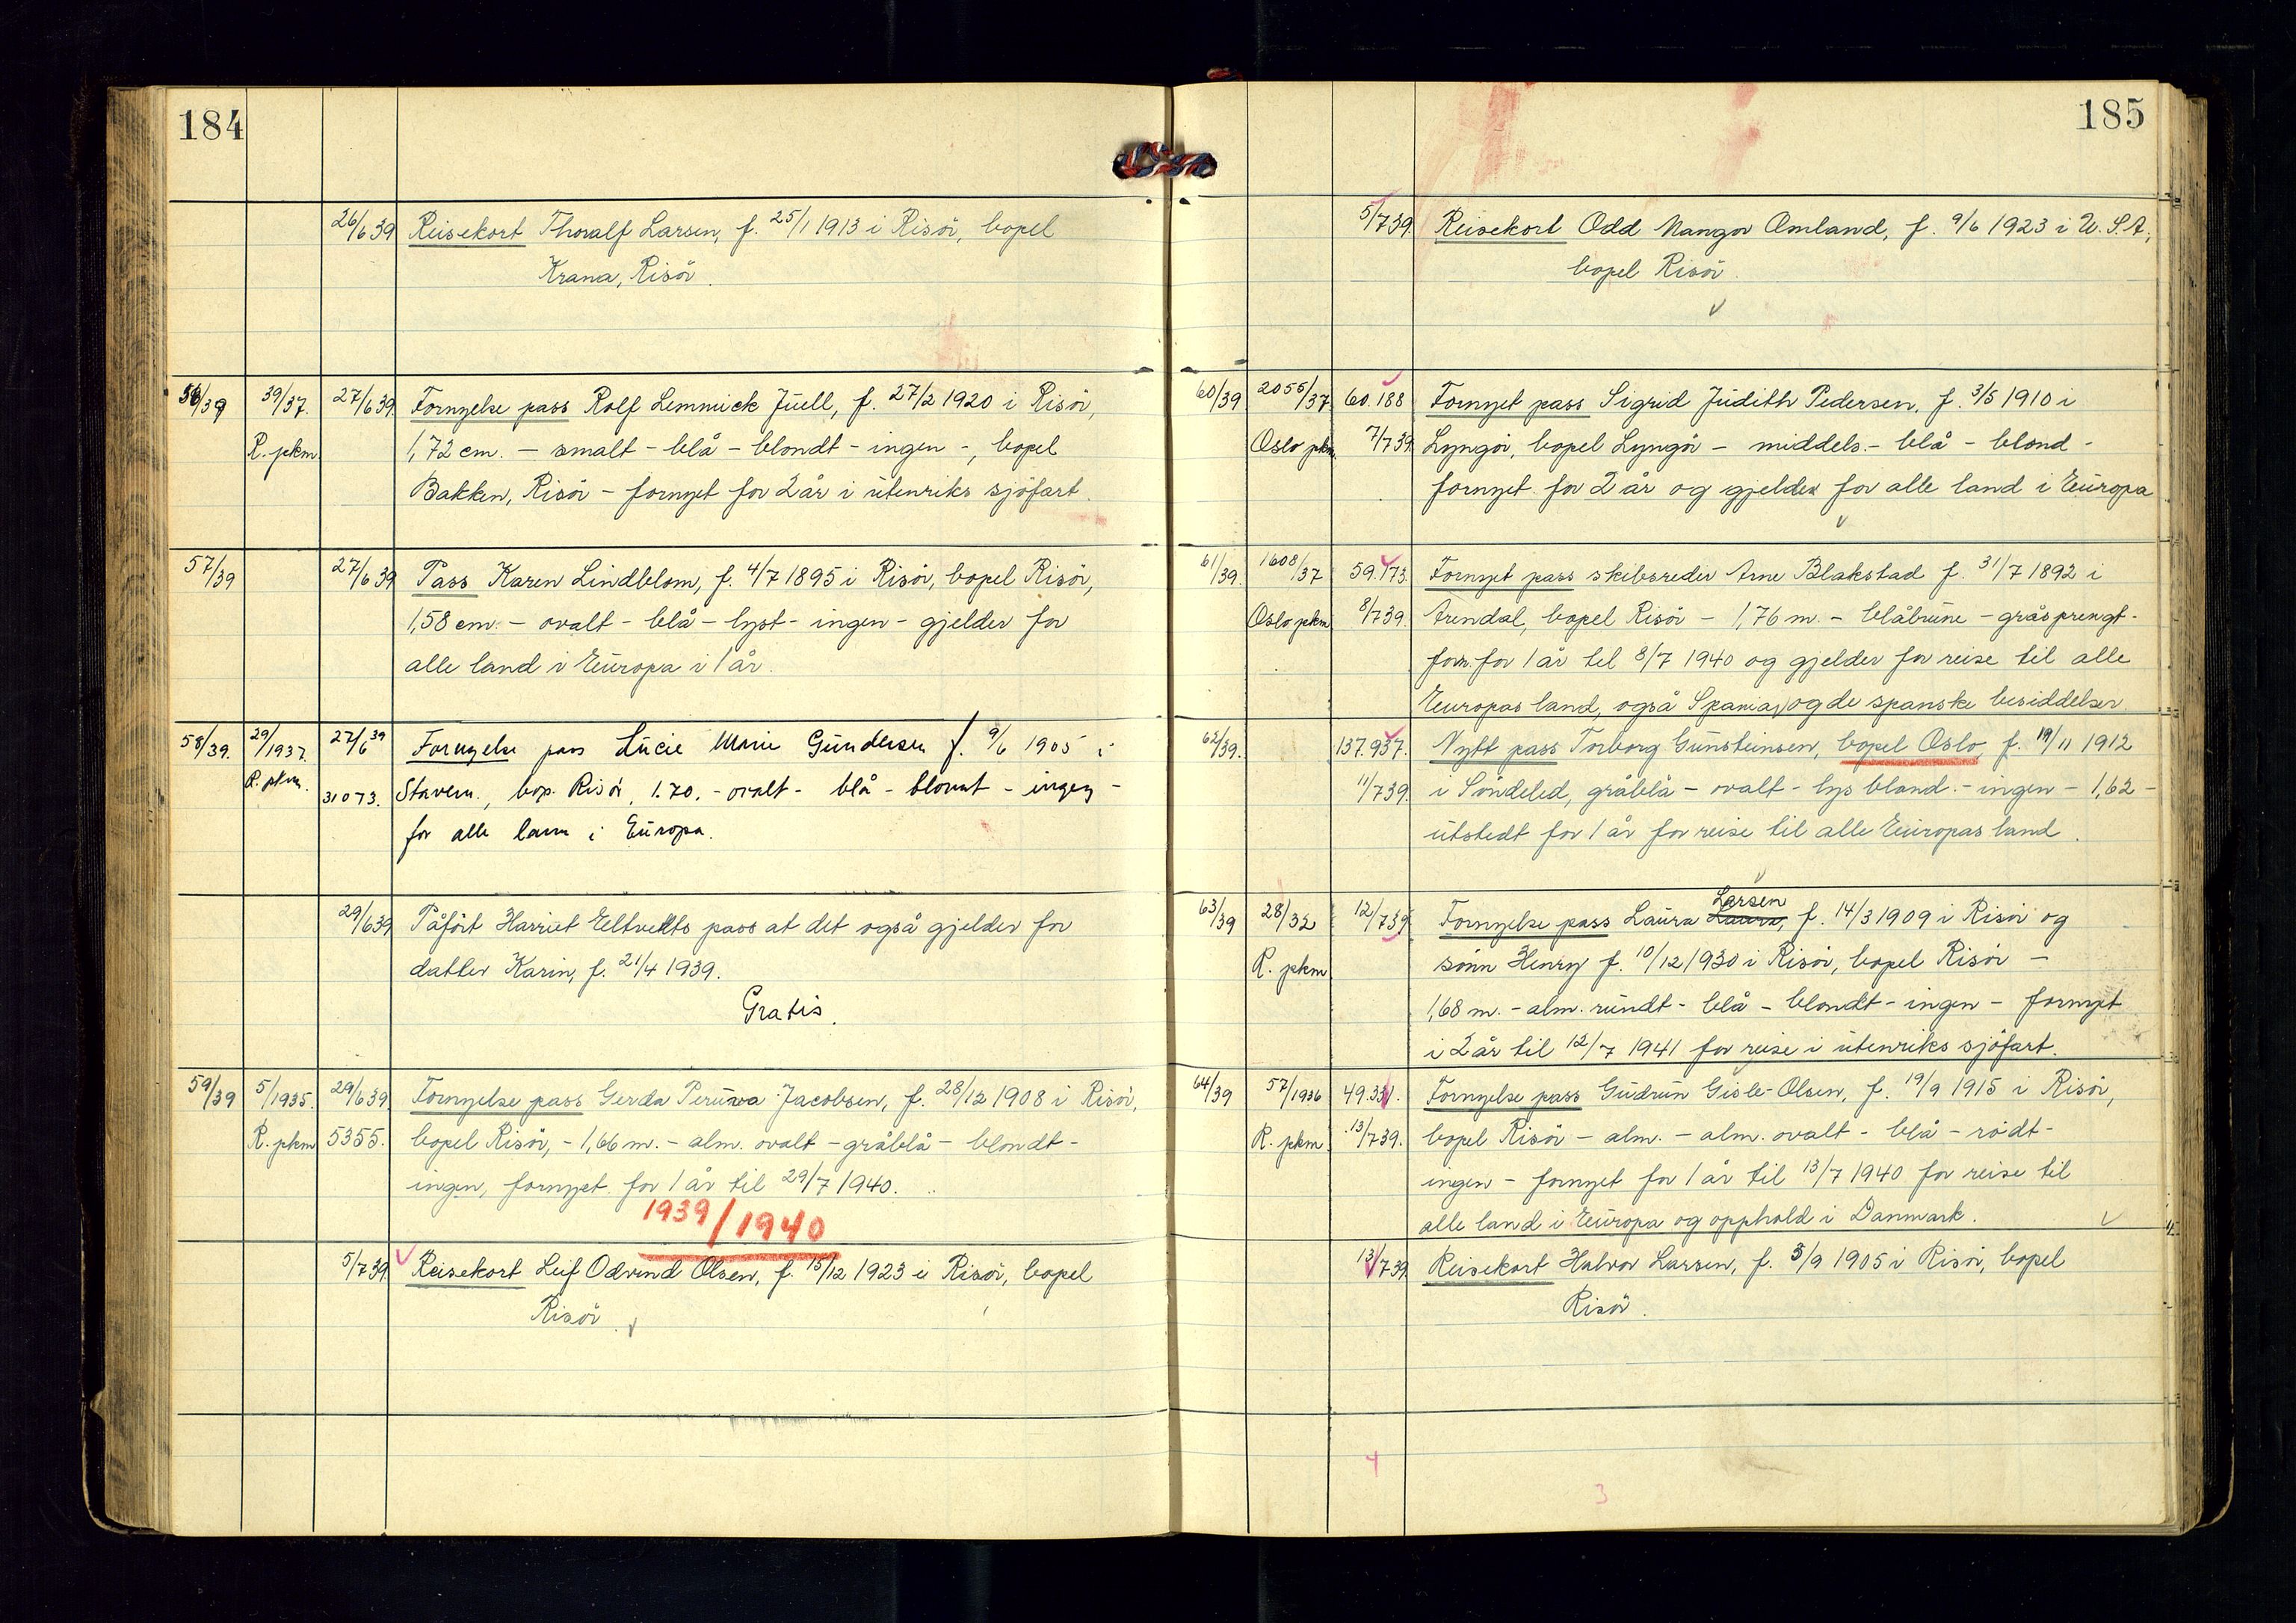 184
26/6 39 Reisekort Thoralf Larsen, f. 25/1 1913 i Risör, bopel
Krana, Risör.
56/39 39/37. 27/6 39. Fornyelse pass Rolf Lemmick Juell, f. 27/2 1920 i Risör,
R. pkm. 1,72 cm. – smalt – blå – blondt – ingen –, bopel
Bakken, Risör – fornyet for 2 år i utenriks sjöfart.
57/39 27/6 39 Pass Karen Lindblom, f. 4/7 1895 i Risör, bopel Risör,
1,58 cm. – ovalt – blå – lyst – ingen – gjelder for
alle land i Europa i 1 år.
58/39. 29/1937. 27/6 39 Fornyelse pass Lucie Marie Gundersen f. 9/6 1905 i
R. pkm. 31073. Stavern., bop. Risör, 1.70. – ovalt – blå – blondt – ingen –
for alle land i Europa.
29/6 39 Påfört Harriet Eeltvedts pass at det også gjelder for
datter Karin, f. 21/4 1939.
Gratis.
59/39 5/1935. 29/6 39 Fornyelse pass Gerda Peruva Jacobsen, f. 28/12 1908 i Risör,
R. pkm 5355. bopel Risör, – 1,66 m. – alm. ovalt – gråblå – blondt –
ingen, fornyet for 1 år til 29/7 1940.
1939/1940
5/7 39 Reisekort Leif Odvind Olsen, f. 15/12 1923 i Risör, bopel
Risör.
185
5/7 39. Reisekort Odd Mangor Omland, f. 9/6 1923 i U.S.A.,
bopel Risör.
60/39 2055/37 60.188 Fornyet pass Sigrid Judith Pedersen, f. 3/5 1910 i
Oslo pkm. 7/7 39 Lyngör, bopel Lyngör – middels. – blå – blond –
fornyet for 2 år og gjelder for alle land i Europa
61/39. 1608/37 59.173. Fornyet pass skibsreder Arne Blakstad f. 31/7 1892 i
Oslo pkm 8/7 39. Arendal, bopel Risör – 1,76 m. – blåbrune – gråsprengt –
forn. for 1 år til 8/7 1940 og gjelder for reise til alle
Europas land, også Spania, og de spanske besiddelser.
62/39. 137.937. Nytt pass Torborg Gunsteinsen, bopel Oslo, f. 19/11 1912
11/7 39. i Söndeled, gråblå – ovalt – lys blond. – ingen – 1,62 –
utstedt for 1 år for reise til alle Europas land.
Larsen
63/39 28/32 12/7 39 Fornyelse pass Laura Laura, f. 14/3 1909 i Risör og
R. pkm sönn Henry f. 10/12 1930 i Risör, bopel Risör –
1,68 m. – alm. rundt – blå – blondt – ingen – fornyet
i 2 år til 12/7 1941 for reise i utenriks sjöfart.
64/39 57/1936 49.331. Fornyelse pass Gudrun Gisle-Olsen, f. 19/9 1915 i Risör,
R. pkm 13/7 39. bopel Risör – alm. – alm. ovalt – blå – rödt –
ingen – fornyet for 1 år til 13/7 1940 for reise til
alle land i Europa og opphold i Danmark.
13/7 39 Reisekort Halvor Larsen, f. 3/9 1905 i Risör, bopel
Risör.
4
3